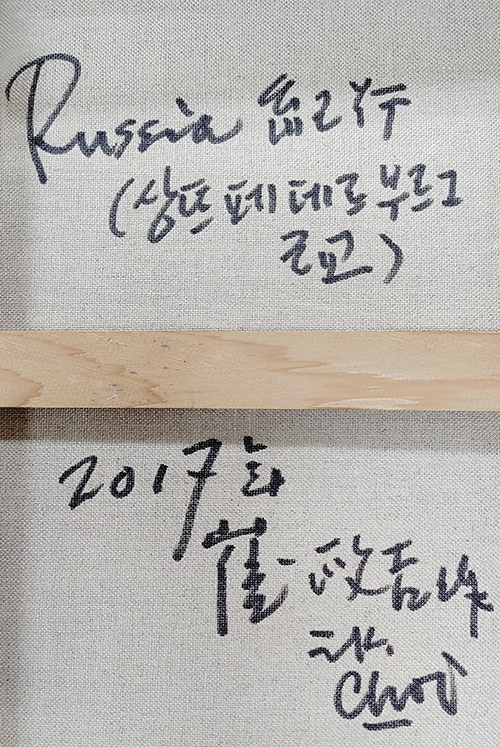 Russia
(상뜨 페테로부르그
근교)
2017
崔 政吉 作
Choi